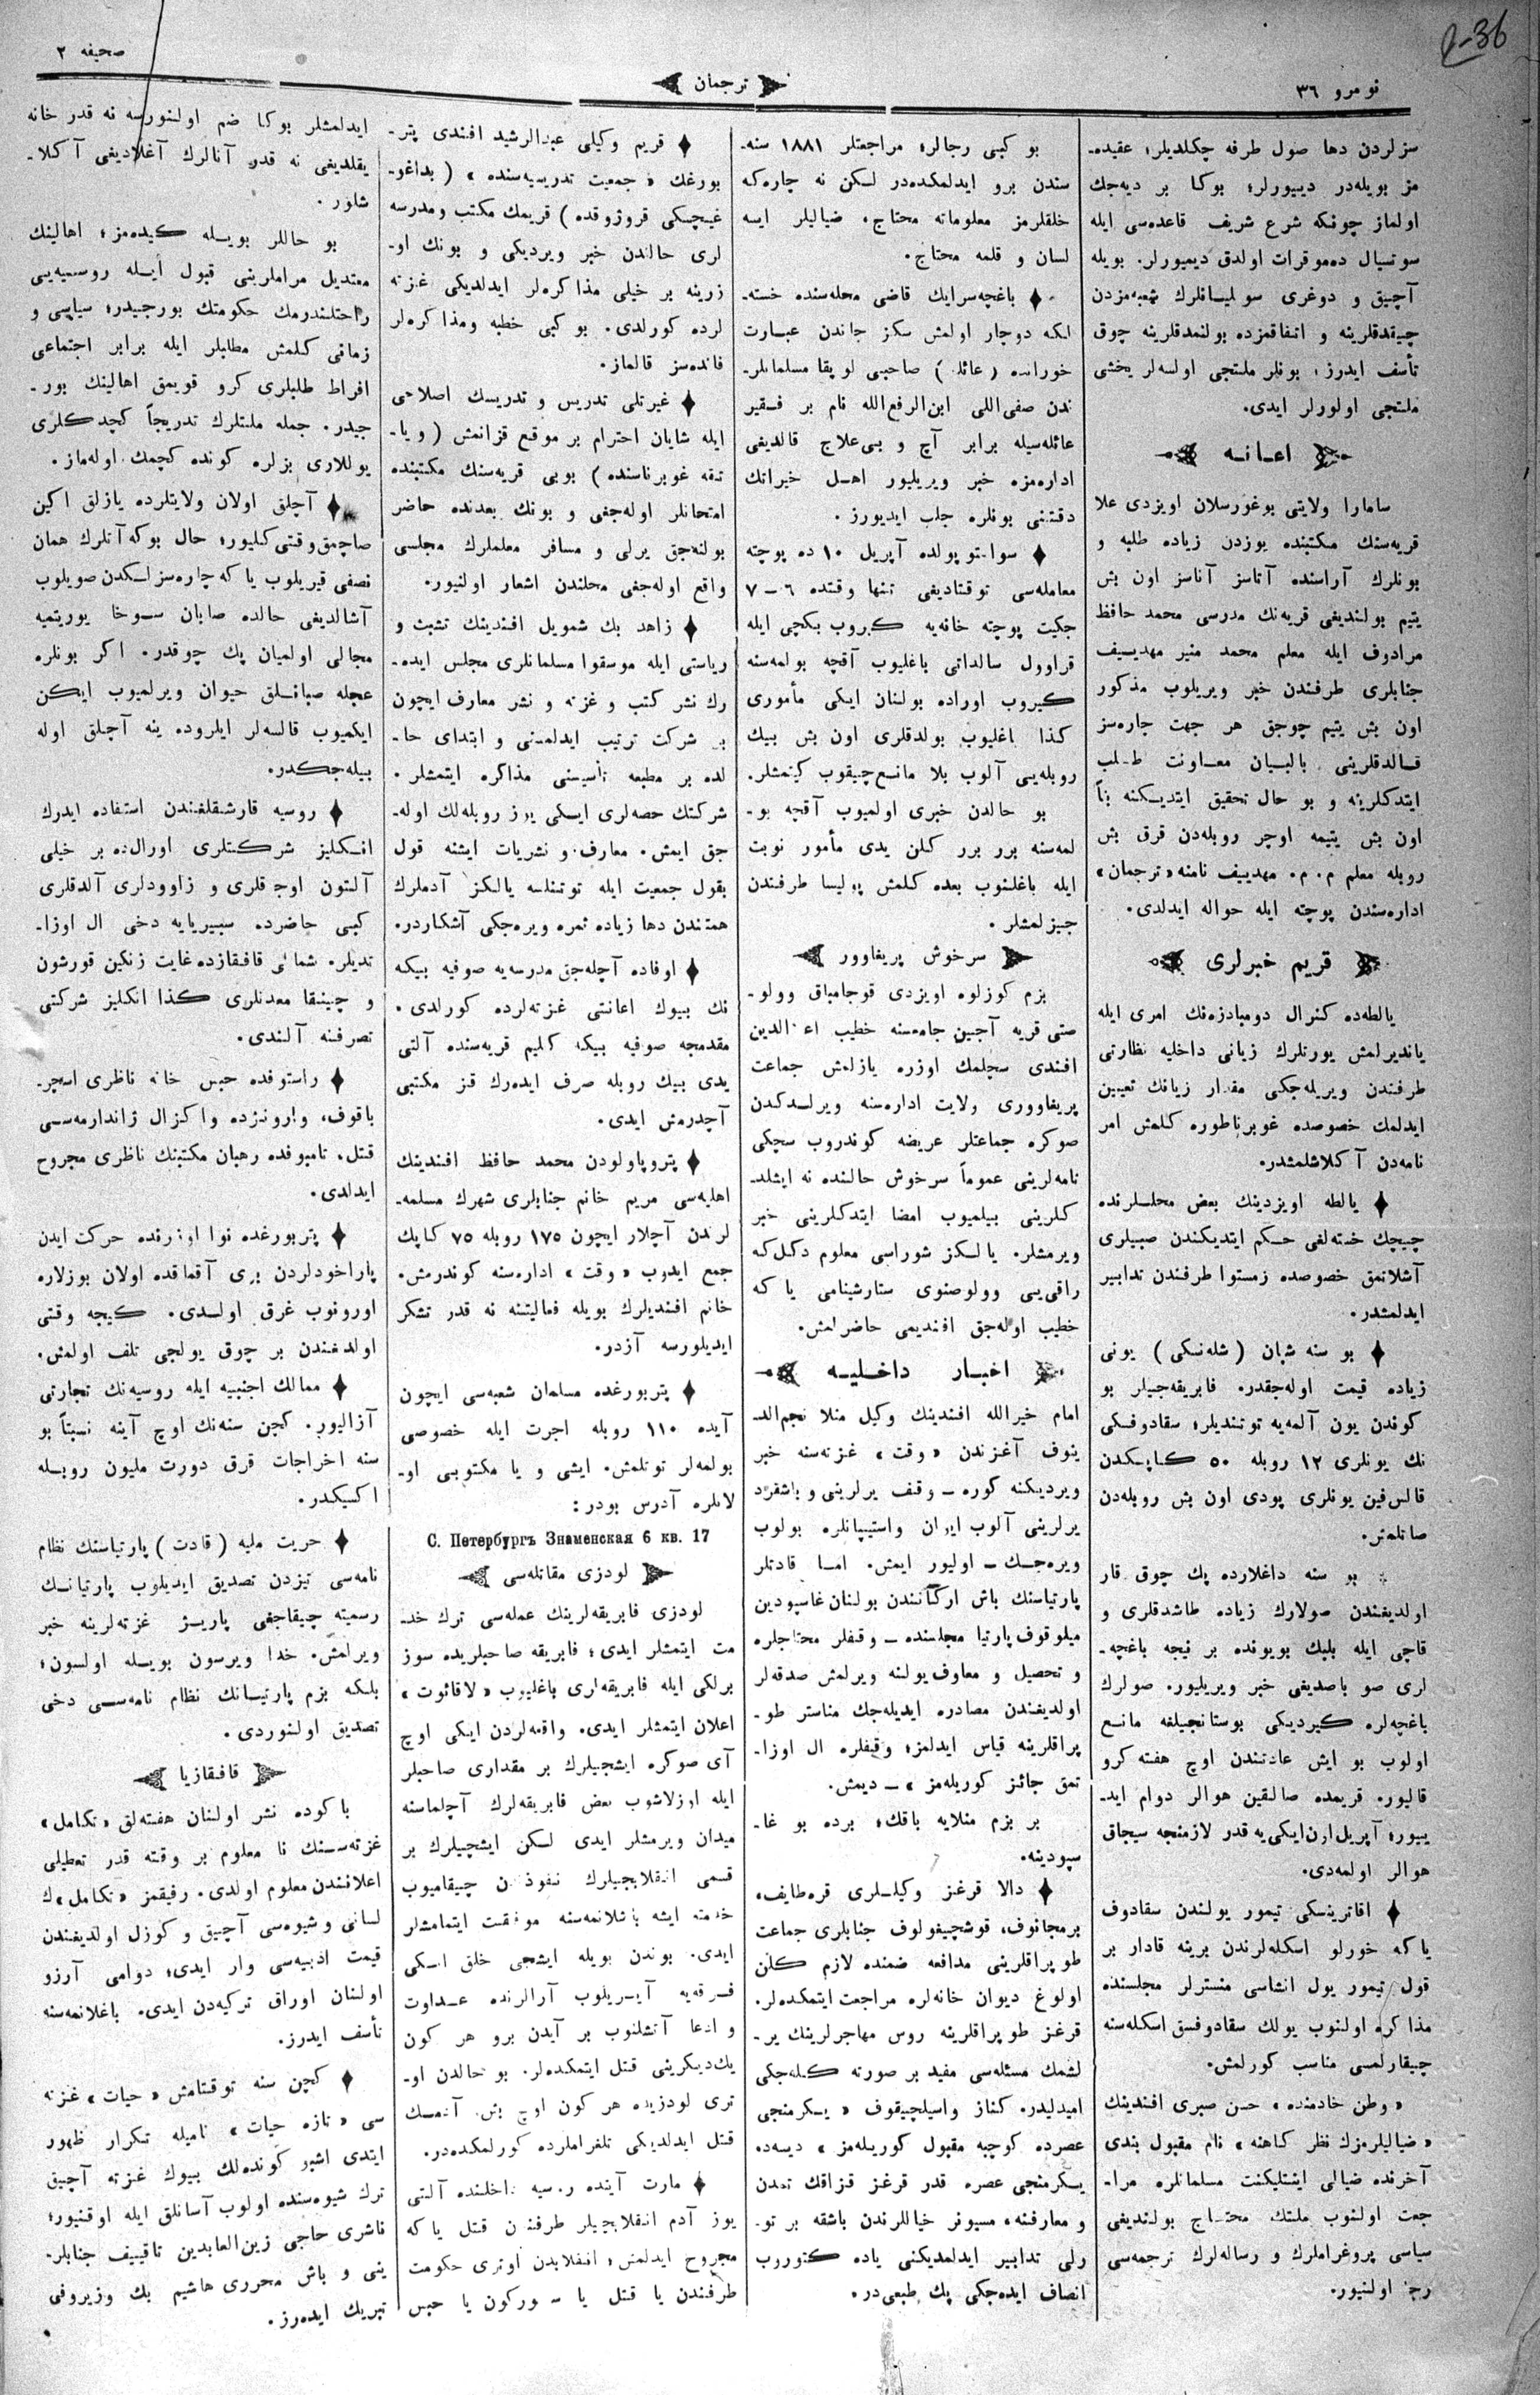 نومرو ٣٦
ترجمان
صحيفه ٢
سزلردن دها صول طرفه چكلديلر؛ عقيده‌ـ
مز بويله‌در ديييورلر؛ بوكا بر ديه‌جك
اولماز چونكه شرع شريف قاعده‌سى ايله
سوتسيال ده‌موقرات اولدق ديميورلر. بويله
آچيق و دوغرى سوليانلرك شعبه‌مزدن
چيقدقلرينه و اتفاقمزده بولنمدقلرينه چوق
تأسف ايدرز؛ بونلر ملتجى اولسه‌لر يخشى
ملتجى اولورلر ايدى.
اعانه
سامارا ولايتى بوغورسلان اويزدى علا
قريه‌سنك مكتبنده يوزدن زياده طلبه و
بونلرك آراسنده آتاسز آناسز اون بش
يتيم بولنديغى قريه‌نك مدرسى محمد حافظ
مرادوف ايله معلم محمد منير مهدييف
جنابلرى طرفندن خبر ويريلوب مذكور
اون بش يتيم چوجق هر جهت چاره‌سز
قالدقلرينى بالبيان معاونت طلب
ايتدكلرينه و بو حال تحقيق ايتديكنه بناً
اون بش يتيمه اوچر روبله‌دن قرق بش
روبله معلم م. م. مهدييف نامنه «ترجمان»
اداره‌سندن پوچته ايله حواله ايدلدى.
قريم خبرلرى
يالطه‌ده كنرال دومبادزه‌نك امرى ايله
يانديرلمش يورتلرك زيانى داخليه نظارتى
طرفندن ويريله‌جكى مقدار زيانك تعيين
ايدلمك خصوصده غوبرناطوره كلمش امر
نامه‌دن آكلاشلمشدر.
يالطه اويزدينك بعض محللرنده
چيچك خسته‌لغى حكم ايتديكندن صبيلرى
آشلانمق خصوصده زمستوا طرفندن تدابير
ايدلمشدر.
بو سنه شبان (شله‌نكى) يونى
زياده قيمت اوله‌جقدر. فابريقه‌جيلر بو
كوندن يون آلمه‌يه توتنديلر؛ سقادوفسكى
نك يونلرى ١٢ روبله ٥٠ كاپيكدن
فالس‌فين يونلرى پودى اون بش روبله‌دن
صاتلمش.
بو سنه داغلارده پك چوق قار
اولديغندن صولارك زياده طاشدقلرى و
قاچى ايله بلبك بويونده بر نيچه باغچه‌ـ
لرى صو باصديغى خبر ويريليور. صولرك
باغچه‌لره كيرديكى بوستانجيلغه مانع
اولوب بو ايش عادتندن اوچ هفته كرو
قاليور. قريمده صالقين هوالر دوام ايدـ
ييور؛ آپريل اون‌ايكى‌يه قدر لازمنجه سيجاق
هوالر اولمه‌دى.
اقاترينسكى تيمور يولندن سقادوف
ياكه خورلو اسكله‌لرندن برينه قادار بر
قول تيمور يول انشاسى منسترلر مجلسنده
مذاكره اولنوب يولك سقادوفسق اسكله‌سنه
چيقارلمسى مناسب كورلمش.
«وطن خادمنده» حسن صبرى افندينك
«ضياليلرمزك نظر كاهنه» نام مقبول بندى
آخرنده ضيالى ايشتليكنت مسلمانلره مراـ
جعت اولنوب ملتك محتاج بولنديغى
سياسى پروغراملرك و رساله‌لرك ترجمه‌سى
رجا اولنيور.
بو كبى رجالر؛ مراجعتلر ١٨٨١ سنه‌ـ
سندن برو ايدلمكده‌در لكن نه چاره‌كه
خلقلرمز معلوماته محتاج. ضياليلر ايسه
لسان و قلمه محتاج.
باغچه‌سرايك قاضى محله‌سنده خسته‌ـ
لكه دوچار اولمش سكز جاندن عبارت
خورانده (عائله) صاحبى لوپقا مسلمانلرـ
ندن صفى‌اللى ابن‌الرفع‌الله نام بر فقير
عائله‌سيله برابر آچ و بى‌علاج قالديغى
اداره‌مزه خبر ويريليور اهل خيراتك
دقتنى بونلره جلب ايدييورز.
سواستوپولده آپريل ١٠ ده پوچته
معامله‌سى توقتاديغى تنها وقتده ٦ – ٧
جكيت پوچته خانه‌يه كيروب بكچى ايله
قراوول سالداتى باغليوب آقچه بولمه‌سنه
كيروب اوراده بولنان ايكى مأمورى
كذا باغليوب بولدقلرى اون بش بيك
روبله‌يى آلوب بلا مانع چيقوب كيتمشلر.
بو حالدن خبرى اولميوب آقچه بوـ
لمه‌سنه برر برر كلن يدى مأمور نوبت
ايله باغلنوب بعده كلمش پوليسا طرفندن
چيزلمشلر.
سرخوش پريغاوور
بزم كوزلوه اويزدى قوجامباق وولوـ
صتى قريه آجبين جامعسنه خطيب اعزالدين
افندى سچلمك اوزره يازلمش جماعت
پريغاوورى ولايت اداره‌سنه ويرلدكدن
صوكره جماعتلر عريضه كوندروب سچكى
نامه‌لرينى عموماً سرخوش حالنده نه ايشلدـ
كلرينى بيلميوب امضا ايتدكلرينى خبر
ويرمشلر. يالكز شوراسى معلوم دكل‌كه
راقى‌يى وولوصنوى ستارشينامى ياكه
خطيب اوله‌جق افنديمى حاضرلمش.
اخبار داخليه
امام خيرالله افندينك وكيل منلا نجم‌الد
ينوف آغزندن «وقت» غزته‌سنه خبر
ويرديكنه كوره – وقف يرلرينى و باشقرد
يرلرينى آلوب ايران واستيپانلره بولوب
ويره‌جك – اوليور ايمش. اما قادتلر
پارتياسنك باش اركانندن بولنان غاسپودين
ميلوقوف پارتيا مجلسنده – وقفلر محتاجلره
و تحصيل و معاوف يولنه ويرلمش صدقه‌لر
اولديغندن مصادره ايديله‌جك مناستر طوـ
پراقلرينه قياس ايدلمز؛ وقيفلره ال اوزاـ
تمق جائز كوريله‌مز» – ديمش.
بر بزم منلايه باقك؛ برده بو غاـ
سپودينه.
دالا قرغز وكيللرى قره‌طايف،
برمجانوف، قوشچيغولوف جنابلرى جماعت
طوپراقلرينى مدافعه ضمننده لازم كلن
اولوغ ديوان خانه‌لره مراجعت ايتمكده‌لر.
قرغز طوپراقلرينه روس مهاجرلرينك يرـ
لشمك مسئله‌سى مفيد بر صورته كله‌جكى
اميدليدر. كناز واسيلچيقوف «يكرمنجى
عصرده كوچبه مقبول كوريله‌مز» ديسه‌ده
يكرمنجى عصره قدر قرغز قزاقك تمدن
و معارفنه، مسيونر خياللرندن باشقه بر توـ
رلى تدابير ايدلمديكنى ياده كتوروب
انصاف ايده‌جكى پك طبعى‌در.
قريم وكيلى عبدالرشيد افندى پترـ
بورغك «جمعيت تدريسيه‌سنده» (پداغوـ
غيچسكى قروژوقده) قريمك مكتب ومدرسه
لرى حالندن خبر ويرديكى و بونك اوـ
زرينه بر خيلى مذاكره‌لر ايدلديكى غزته
لرده كورلدى. بو كبى خطبه ومذاكره‌لر
فائده‌سز قالماز.
غيرتلى تدريس و تدريسك اصلاحى
ايله شايان احترام بر موقع قزانمش (وياـ
تقه غوبرناسنده) بوبى قريه‌سنك مكتبنده
امتحانلر اوله‌جغى و بونك بعدنده حاضر
بولنه‌جق يرلى و مسافر معلملرك مجلسى
واقع اوله‌جغى محلندن اشعار اولنيور.
زاهد بك شمويل افندينك تشبث و
رياستى ايله موسقوا مسلمانلرى مجلس ايده‌ـ
رك نشر كتب و غزته و نشر معارف ايچون
بر شركت ترتيب ايدلمسنى و ابتداى حاـ
لده بر مطبعه تأسيسنى مذاكره ايتمشلر.
شركتك حصه‌لرى ايكى يوز روبله‌لك اوله‌ـ
جق ايمش. معارف و نشريات ايشنه قول
بقول جمعيت ايله توتنلسه يالكز آدملرك
همتندن دها زياده ثمره ويره‌جكى آشكاردر.
اوفاده آچله‌جق مدرسه‌يه صوفيه بيكه
نك بيوك اعانتى غزته‌لرده كورلدى.
مقدمجه صوفيه بيكه كليم قريه‌سنده آلتى
يدى بيك روبله صرف ايده‌رك قز مكتبى
آچدرمش ايدى.
پتروپاولودن محمد حافظ افندينك
اهليه‌سى مريم خانم جنابلرى شهرك مسلمه‌ـ
لرندن آچلار ايچون ١٧٥ روبله ٧٥ كاپك
جمع ايدوب «وقت» اداره‌سنه كوندرمش.
خانم افنديلرك بويله فعاليتنه نه قدر تشكر
ايديلورسه آزدر.
پتربورغده مسلمان شعبه‌سى ايچون
آيده ١١٠ روبله اجرت ايله خصوصى
بولمه‌لر توتلمش. ايشى و يا مكتوبى اوـ
لانلره آدرس بودر:
С. Петербургъ Знаменская 6 кв. 17
لودزى مقاتله‌سى
لودزى فابريقه‌لرينك عمله‌سى ترك خدـ
مت ايتمشلر ايدى؛ فابريقه صاحبلريده سوز
برلكى ايله فابريقه‌لرى باغليوب «لاقائوت»
اعلان ايتمشلر ايدى. واقعه‌لردن ايكى اوچ
آى صوكره ايشجيلرك بر مقدارى صاحبلر
ايله اوزلاشوب بعض فابريقه‌لرك آچلماسنه
ميدان ويرمشلر ايدى لكن ايشچيلرك بر
قسمى انقلابجيلرك نفوذندن چيقاميوب
خدمته ايشه باشلانمه‌سنه موفقت ايتمامشلر
ايدى. بوندن بويله ايشجى خلق ايكى
فرقه‌يه آيريلوب آرالرنده عداوت
و ادعا آتشلنوب بر آيدن برو هر كون
يك‌ديكرينى قتل ايتمكده‌لر. بو حالدن اوـ
ترى لودزيده هر كون اوچ بش آدمك
قتل ايدلديكى تلغراملرده كورلمكده‌در.
مارت آينده روسيه داخلنده آلتى
يوز آدم انقلابچيلر طرفندن قتل ياكه
مجروح ايدلمش؛ انقلابدن اوترى حكومت
طرفندن يا قتل يا سوركون يا حبس
ايدلمشلر بوكا ضم اولنورسه نه قدر خانه
يقلديغى نه قدر آنالرك آغلاديغى آكلاـ
شلور.
بو حاللر بويله كيده‌مز؛ اهالينك
معتديل مراملرينى قبول ايله روسيه‌يى
راحتلندرمك حكومتك بورجيدر؛ سياسى و
زمانى كلمش مطابلر ايله برابر اجتماعى
افراط طلبلرى كرو قويمق اهالينك بورـ
جيدر. جمله ملتلرك تدريجاً كچدكلرى
يوللارى بزلره كونده كچمك اوله‌ماز.
آچلق اولان ولايتلرده يازلق اكين
صاچمق وقتى كليور؛ حال بوكه آتلرك همان
نصفى قيريلوب ياكه چاره‌سزلكدن صويلوب
آشالديغى حالده صابان سوخا يوريتميه
مجالى اولميان پك چوقدر. اكر بونلره
عجله صبانلق حيوان ويرلميوب ايكن
ايكميوب قالسه‌لر ايلروده ينه آچلق اوله
بيله‌جكدر.
روسيه قارشقلغندن استفاده ايدرك
انكليز شركتلرى اورال‌ده بر خيلى
آلتون اوجقلرى و زاوودلرى آلدقلرى
كبى حاضرده سبيريايه دخى ال اوزاـ
تديلر. شمالى قافقازده غايت زنكين قورشون
و چينقا معدنلرى كذا انكليز شركتى
تصرفنه آلندى.
راستوفده حبس خانه ناظرى اسچرـ
باقوف، وارونژده واكزال ژاندارمه‌سى
قتل، تامبوفده رهبان مكتبنك ناظرى مجروح
ايدلدى.
پتربورغده نوا اوزرنده حركت ايدن
پاراخودلردن برى آقماقده اولان بوزلاره
اورونوب غرق اولدى. كيجه وقتى
اولدغندن بر چوق يولجى تلف اولمش.
ممالك اجنبيه ايله روسيه‌نك تجارتى
آزاليور. كچن سنه‌نك اوچ آينه نسبتاً بو
سنه اخراجات قرق دورت مليون روبله
اكسيكدر.
حريت مليه (قادت) پارتياسنك نظام
نامه‌سى تيزدن تصديق ايديلوب پارتيانك
رسميته چيقاجغى پاريژ غزته‌لرينه خبر
ويرلمش. خدا ويرسون بويله اولسون؛
بلكه بزم پارتيانك نظام نامه‌سى دخى
تصديق اولنوردى.
قافقازيا
باكوده نشر اولنان هفته‌لق «تكامل»
غزته‌سنك نا معلوم بر وقته قدر تعطيلى
اعلانندن معلوم اولدى. رفيقمز «تكامل»ك
لسانى و شيوه‌سى آچيق و كوزل اولديغندن
قيمت ادبيه‌سى وار ايدى؛ دوامى آرزو
اولنان اوراق تركيه‌دن ايدى. باغلانمه‌سنه
تأسف ايدرز.
كچن سنه توقتامش «حيات» غزته
سى «تازه حيات» ناميله تكرار ظهور
ايتدى اشبو كونده‌لك بيوك غزته آچيق
ترك شيوه‌سنده اولوب آسانلق ايله اوقنيور؛
ناشرى حاجى زين‌العابدين تاقييف جنابلرـ
ينى و باش محررى هاشيم بك وزيروفى
تبريك ايده‌رز.